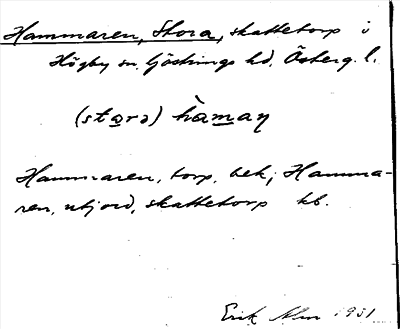 Hammaren, Stora, skattetorp i
Högby sn, Göstrings hd, Österg. l.
(stɑrə) hàmaɳ
Hammaren, torp, bek; Hamma-
ren, utjord, skattetorp kb.
Erik Alm 1951